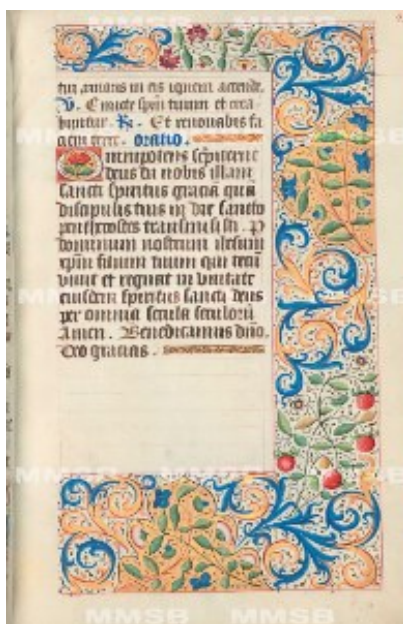 tui amoris in eis ignem accende.
V. Emicte spm̄ tuum et crea
buntur. R. Et renovabis fa
ciem terre. Oratio.
Omnipotens sēpiterne
deus da nobis illam
sancti spiritus graciā quā
discipulis tuis in die sancto
penthecostes transmisisti. P
dominum nostrum ihesum
xpm̄ filium tuum qui tecū
vivit et regnat in unitate
eiusdem spiritus sancti deus
per omnia secula seculorū
Amen. Benedicamus dño.
Deo gracias.
MMSB MMSB